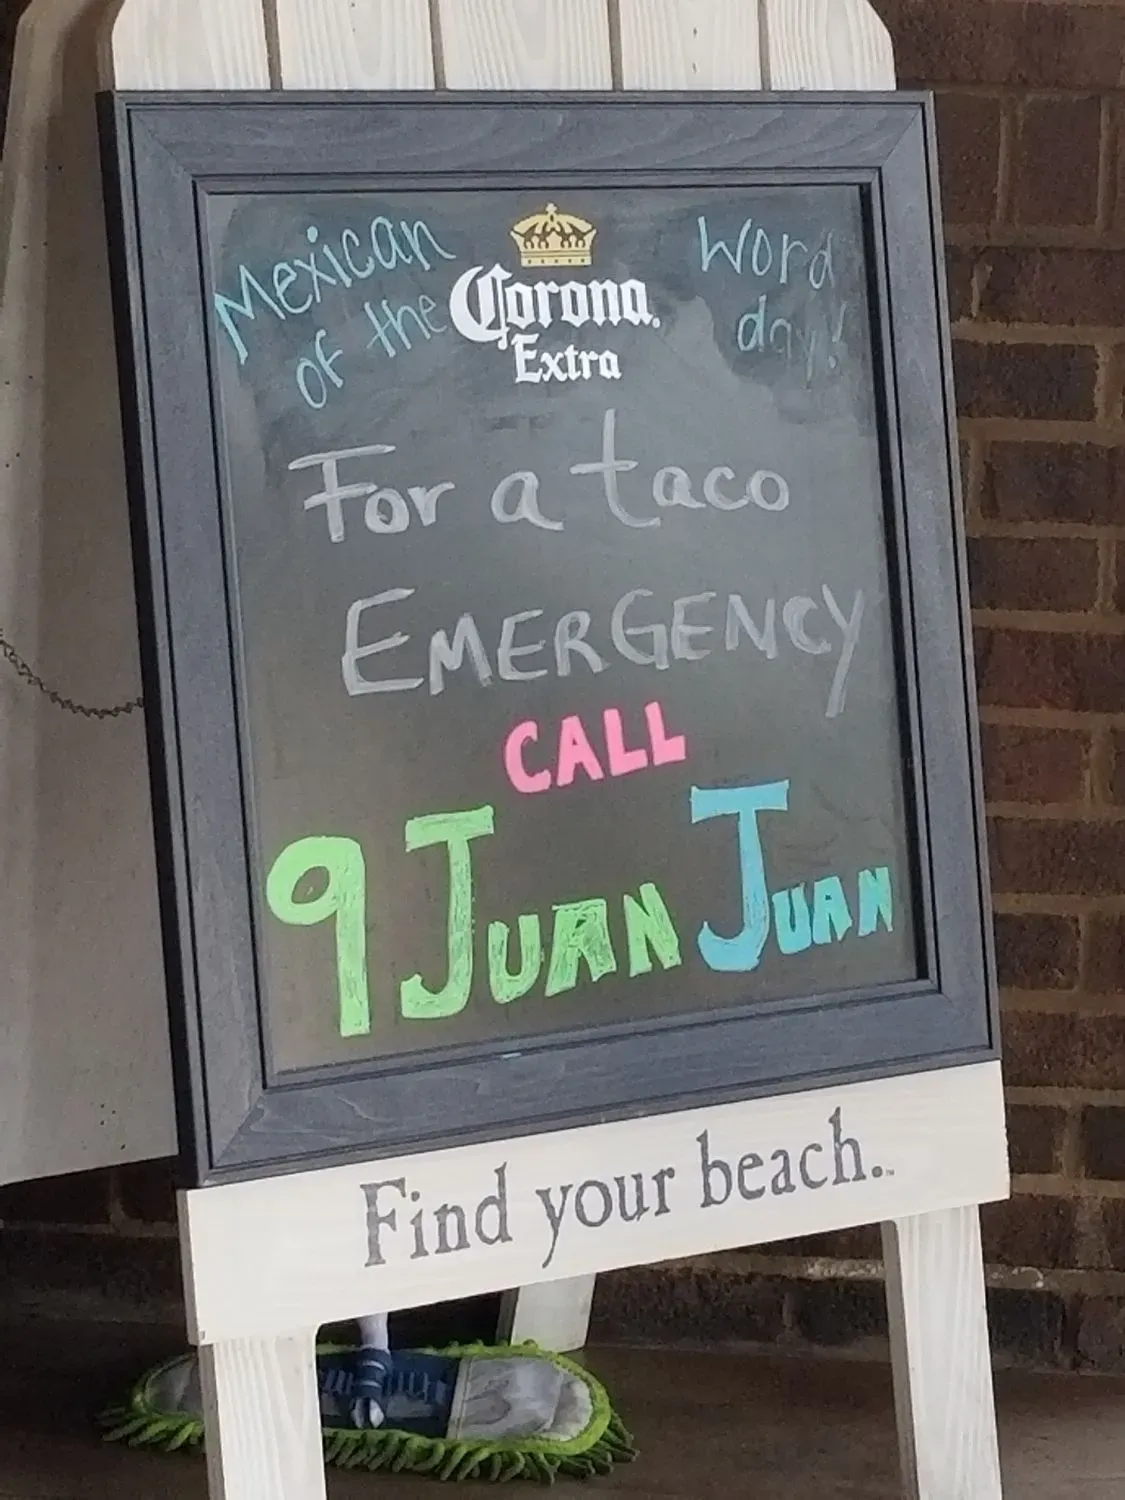 Mexican Word
of the day!
Corona
Extra
For a taco
EMERGENCY
CALL
9 JUAN JUAN
Find your beach.™